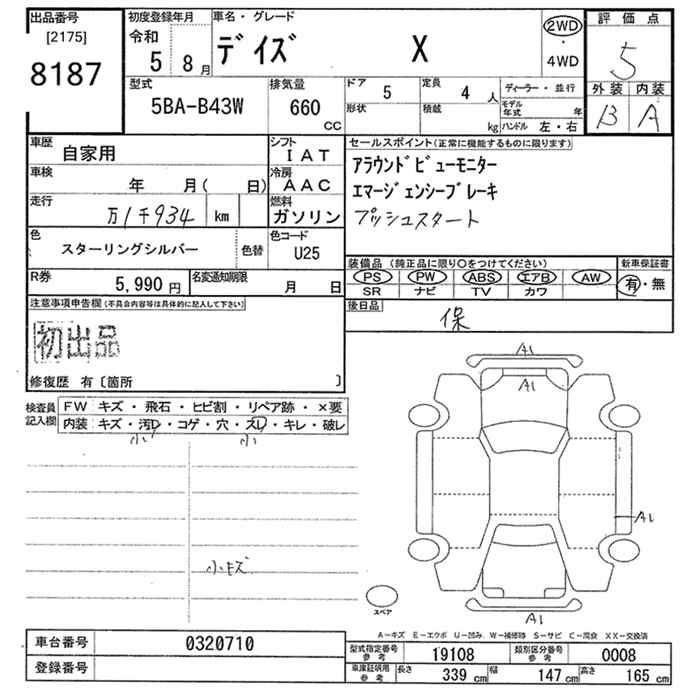 出品番号
[2175]
8187
初度登録年月
令和
5 8月
車名・グレード
デイズ X
2WD
・
4WD
評価点
5
外装 内装
B A
型式
5BA-B43W
排気量
660
CC
ドア 5
形状
定員 4 人
積載 kg
ディーラー・並行
モデル年式 年
ハンドル 左・右
車歴
自家用
シフト
IAT
車検
年 月( 日)
冷房
AAC
走行
万1千934 km
燃料
ガソリン
色
スターリングシルバー
色替
色コード
U25
R券
5,990円
名変通知期限
月 日
セールスポイント(正常に機能するものに限ります)
アラウンドビューモニター
エマージェンシーブレーキ
プッシュスタート
装備品 (純正品に限り○をつけてください)
PS PW ABS エアB AW
SR ナビ TV カワ
新車保証書
有・無
後日品
保
注意事項申告欄(不具合内容等は具体的に記入して下さい)
初出品
修復歴 有〔箇所 〕
検査員記入欄
FW キズ・飛石・ヒビ割・リペア跡・×要
内装 キズ・汚レ・コゲ・穴・スレ・キレ・破レ
小 小
小キズ
A1
A1
A1
A1
スペア
A-キズ E-エクボ U-凹み W-補修跡 S-サビ C-腐食 XX-交換済
車台番号 0320710
登録番号
型式指定番号参考 19108
類別区分番号参考 0008
車庫証明用参考 長さ 339 cm 幅 147 cm 高さ 165 cm